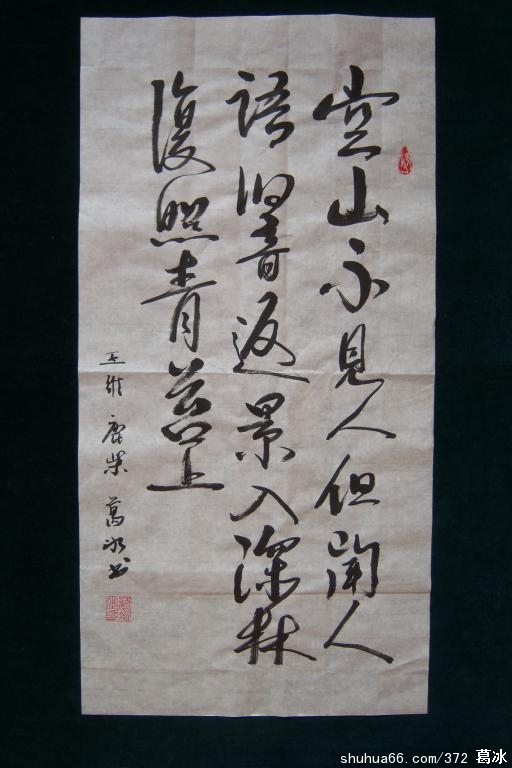 空山不见人但闻人
语响音返景入深林
復照青苔上
王维 鹿柴 葛冰书
shuhua66.com/372 葛冰